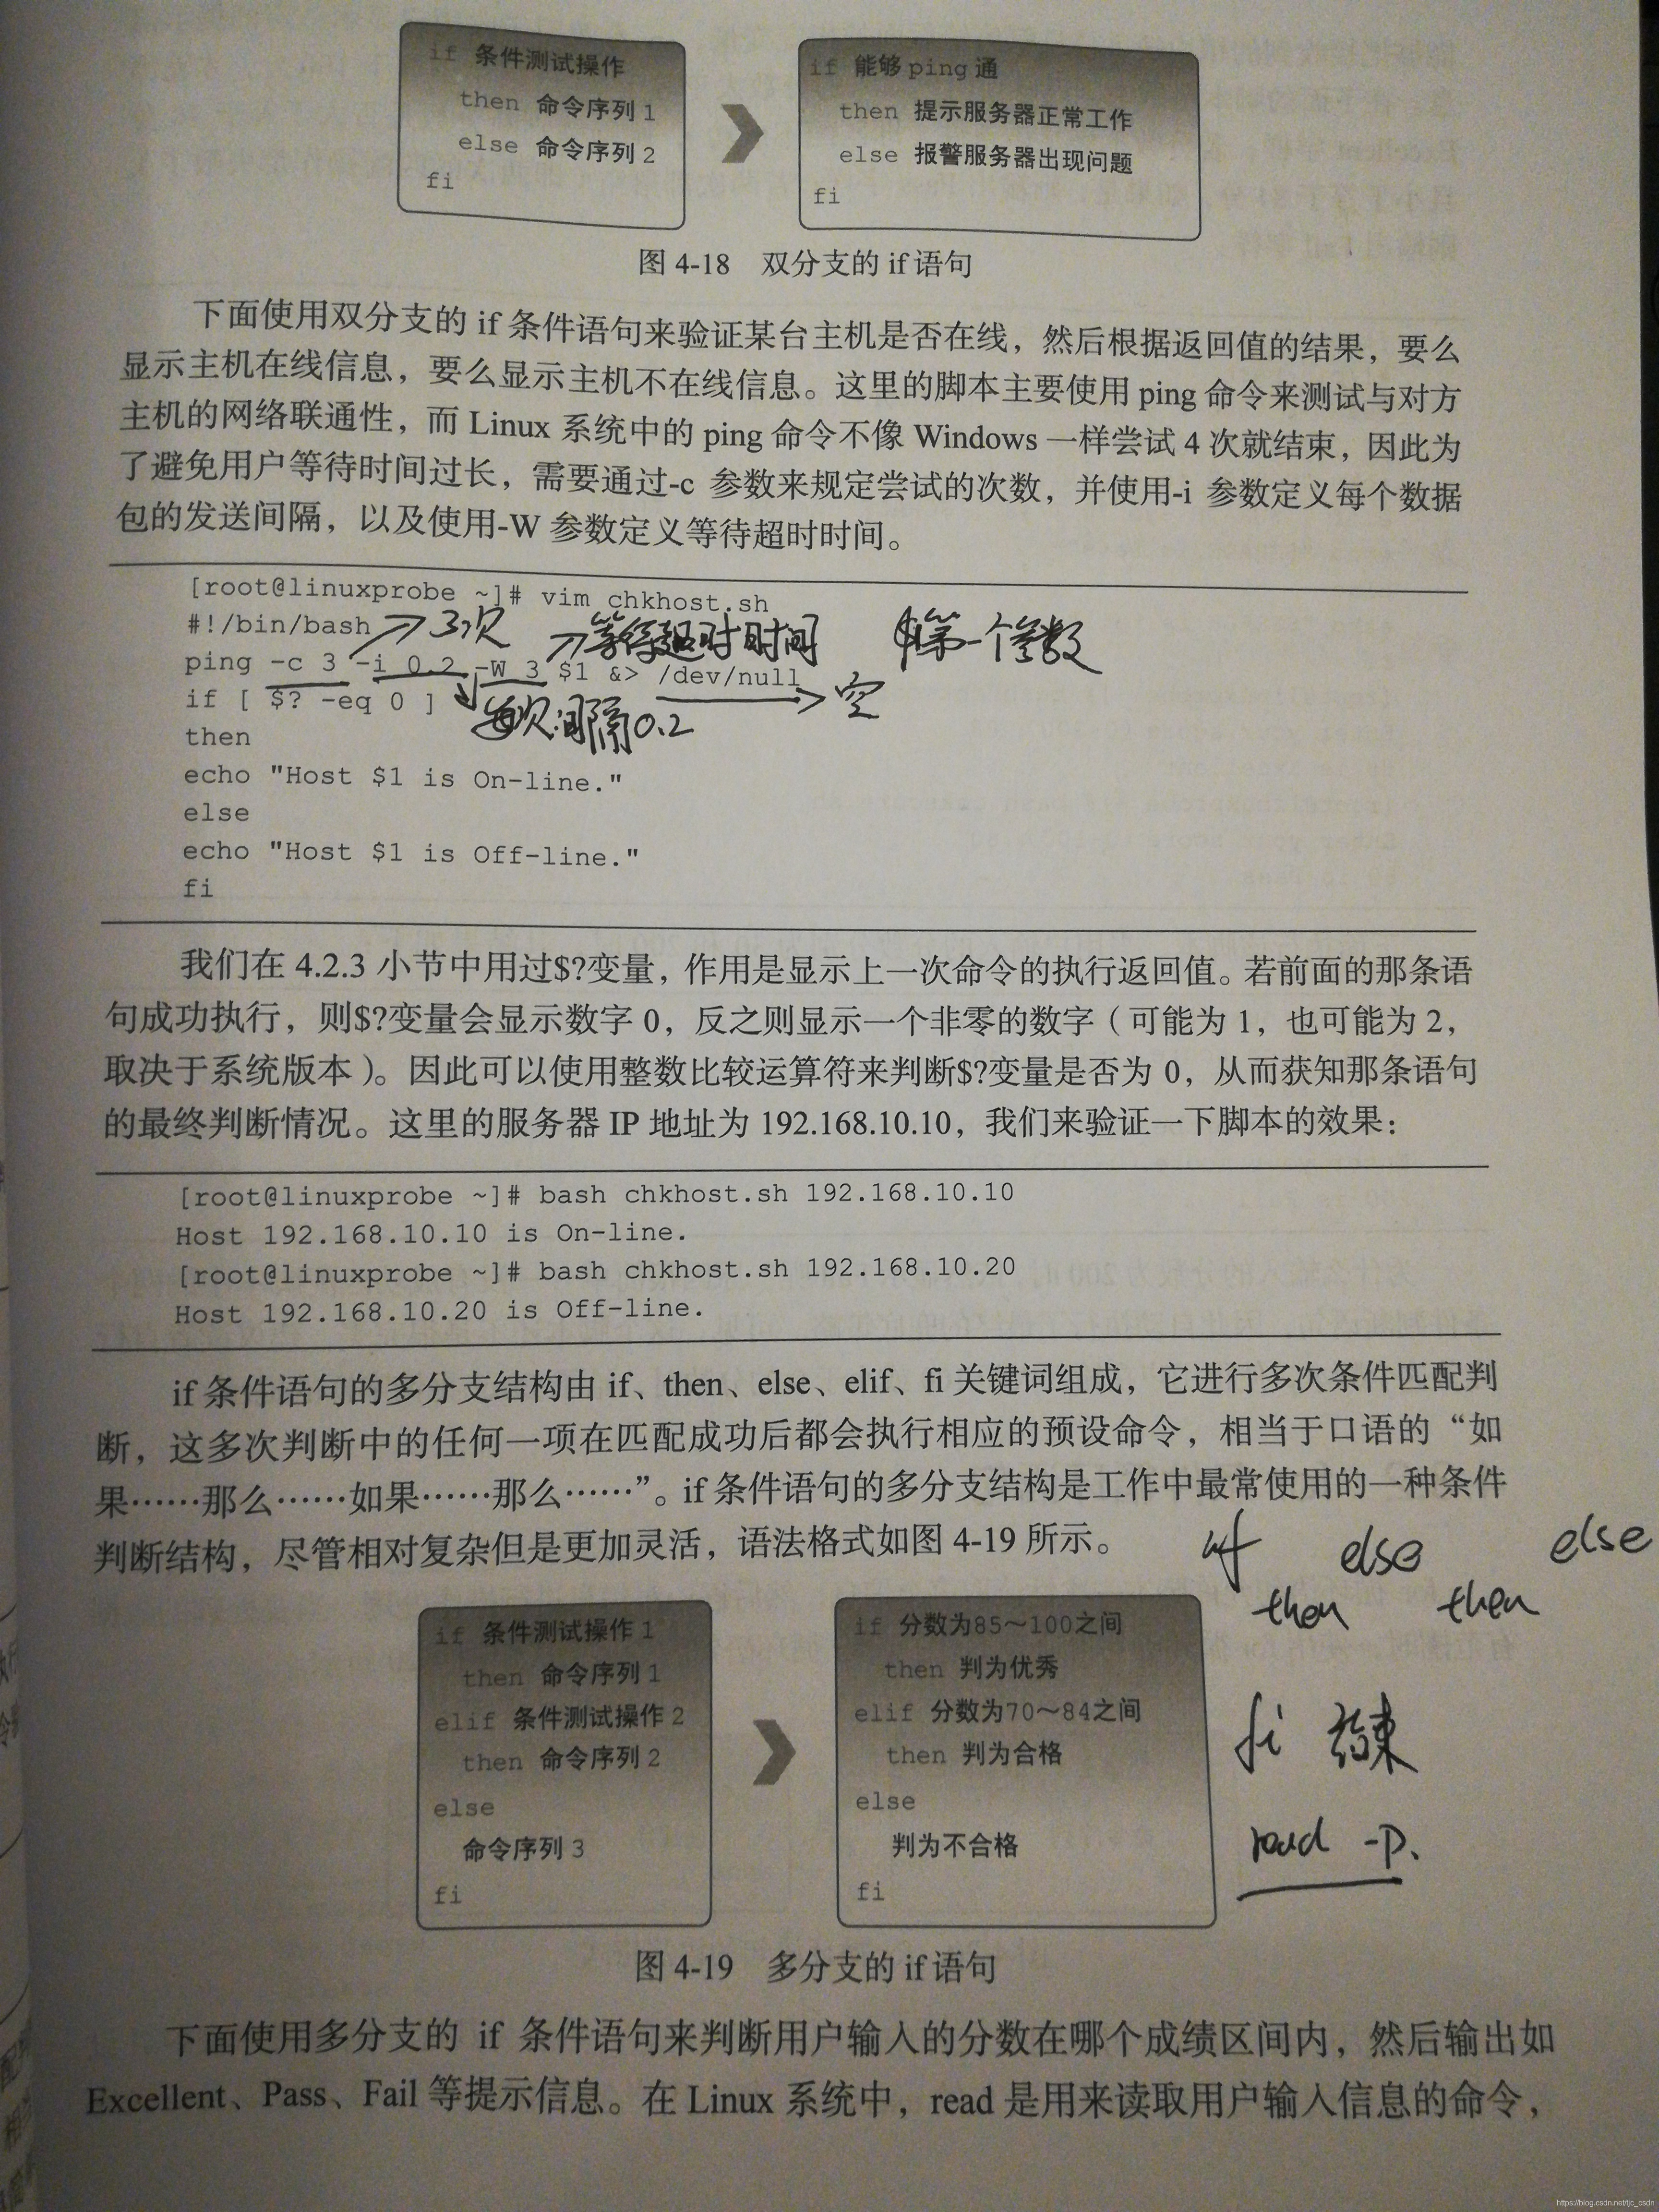 if 条件测试操作
then 命令序列 1
else 命令序列 2
fi
if 能够 ping 通
then 提示服务器正常工作
else 报警服务器出现问题
fi
图 4-18 双分支的 if 语句
下面使用双分支的 if 条件语句来验证某台主机是否在线，然后根据返回值的结果，要么
显示主机在线信息，要么显示主机不在线信息。这里的脚本主要使用 ping 命令来测试与对方
主机的网络联通性，而 Linux 系统中的 ping 命令不像 Windows 一样尝试 4 次就结束，因此为
了避免用户等待时间过长，需要通过-c 参数来规定尝试的次数，并使用-i 参数定义每个数据
包的发送间隔，以及使用-W 参数定义等待超时时间。
[root@linuxprobe ~]# vim chkhost.sh
#!/bin/bash
3次
等待超时时间
第一个参数
ping -c 3 -i 0.2 -W 3 $1 &> /dev/null
空
if [ $? -eq 0 ]
每次间隔0.2
then
echo "Host $1 is On-line."
else
echo "Host $1 is Off-line."
fi
我们在 4.2.3 小节中用过$?变量，作用是显示上一次命令的执行返回值。若前面的那条语
句成功执行，则$?变量会显示数字 0，反之则显示一个非零的数字（可能为 1，也可能为 2，
取决于系统版本）。因此可以使用整数比较运算符来判断$?变量是否为 0，从而获知那条语句
的最终判断情况。这里的服务器 IP 地址为 192.168.10.10，我们来验证一下脚本的效果：
[root@linuxprobe ~]# bash chkhost.sh 192.168.10.10
Host 192.168.10.10 is On-line.
[root@linuxprobe ~]# bash chkhost.sh 192.168.10.20
Host 192.168.10.20 is Off-line.
if 条件语句的多分支结构由 if、then、else、elif、fi 关键词组成，它进行多次条件匹配判
断，这多次判断中的任何一项在匹配成功后都会执行相应的预设命令，相当于口语的“如
果……那么……如果……那么……”。if 条件语句的多分支结构是工作中最常使用的一种条件
判断结构，尽管相对复杂但是更加灵活，语法格式如图 4-19 所示。
if else else
then then
if 条件测试操作 1
then 命令序列 1
elif 条件测试操作 2
then 命令序列 2
else
命令序列 3
fi
if 分数为85～100之间
then 判为优秀
elif 分数为70～84之间
then 判为合格
else
判为不合格
fi
fi 结束
read -p、
图 4-19 多分支的 if 语句
下面使用多分支的 if 条件语句来判断用户输入的分数在哪个成绩区间内，然后输出如
Excellent、Pass、Fail 等提示信息。在 Linux 系统中，read 是用来读取用户输入信息的命令，
https://blog.csdn.net/tjc_csdn